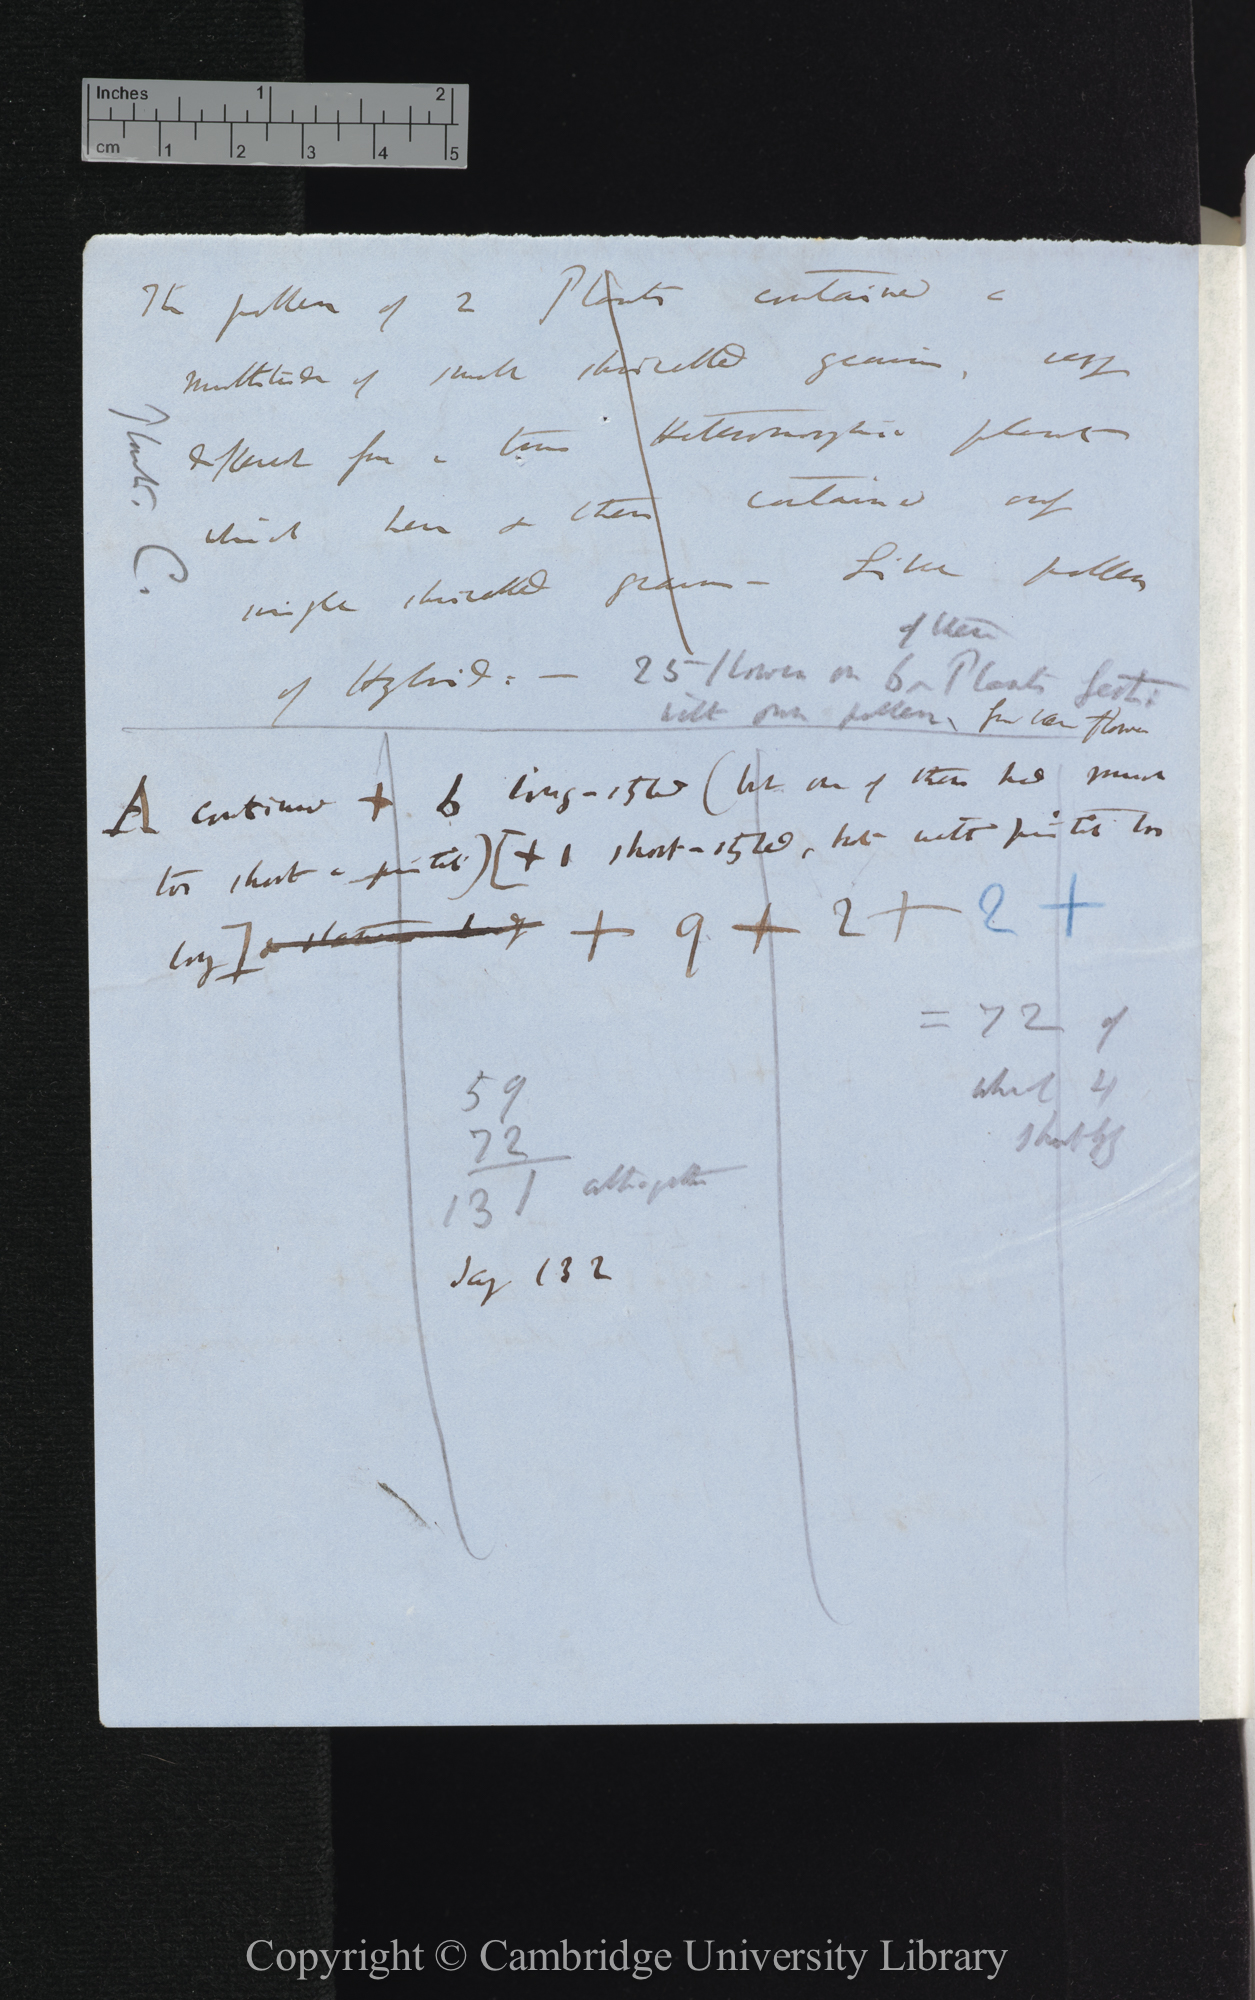 Inches 1 2
cm 1 2 3 4 5
The pollen of 2 Plants contained a
multitude of small shrivelled grains, very
different from a true Heteromorphic plant
which here & there contained only
single shrivelled grains — Like pollen
of Hybrid: —
Plants. C.
of these
25 flowers on 6 Plants fert:
with own pollen, forten flowers
A continued + 6 long-styled (but one of them had much
too short a pistil) [+ 1 short-styled, but with pistil too
long] + 9 + 2 + 2 +
= 72 of
which 4
short
59
72
131 altogether
Say 132
Copyright © Cambridge University Library